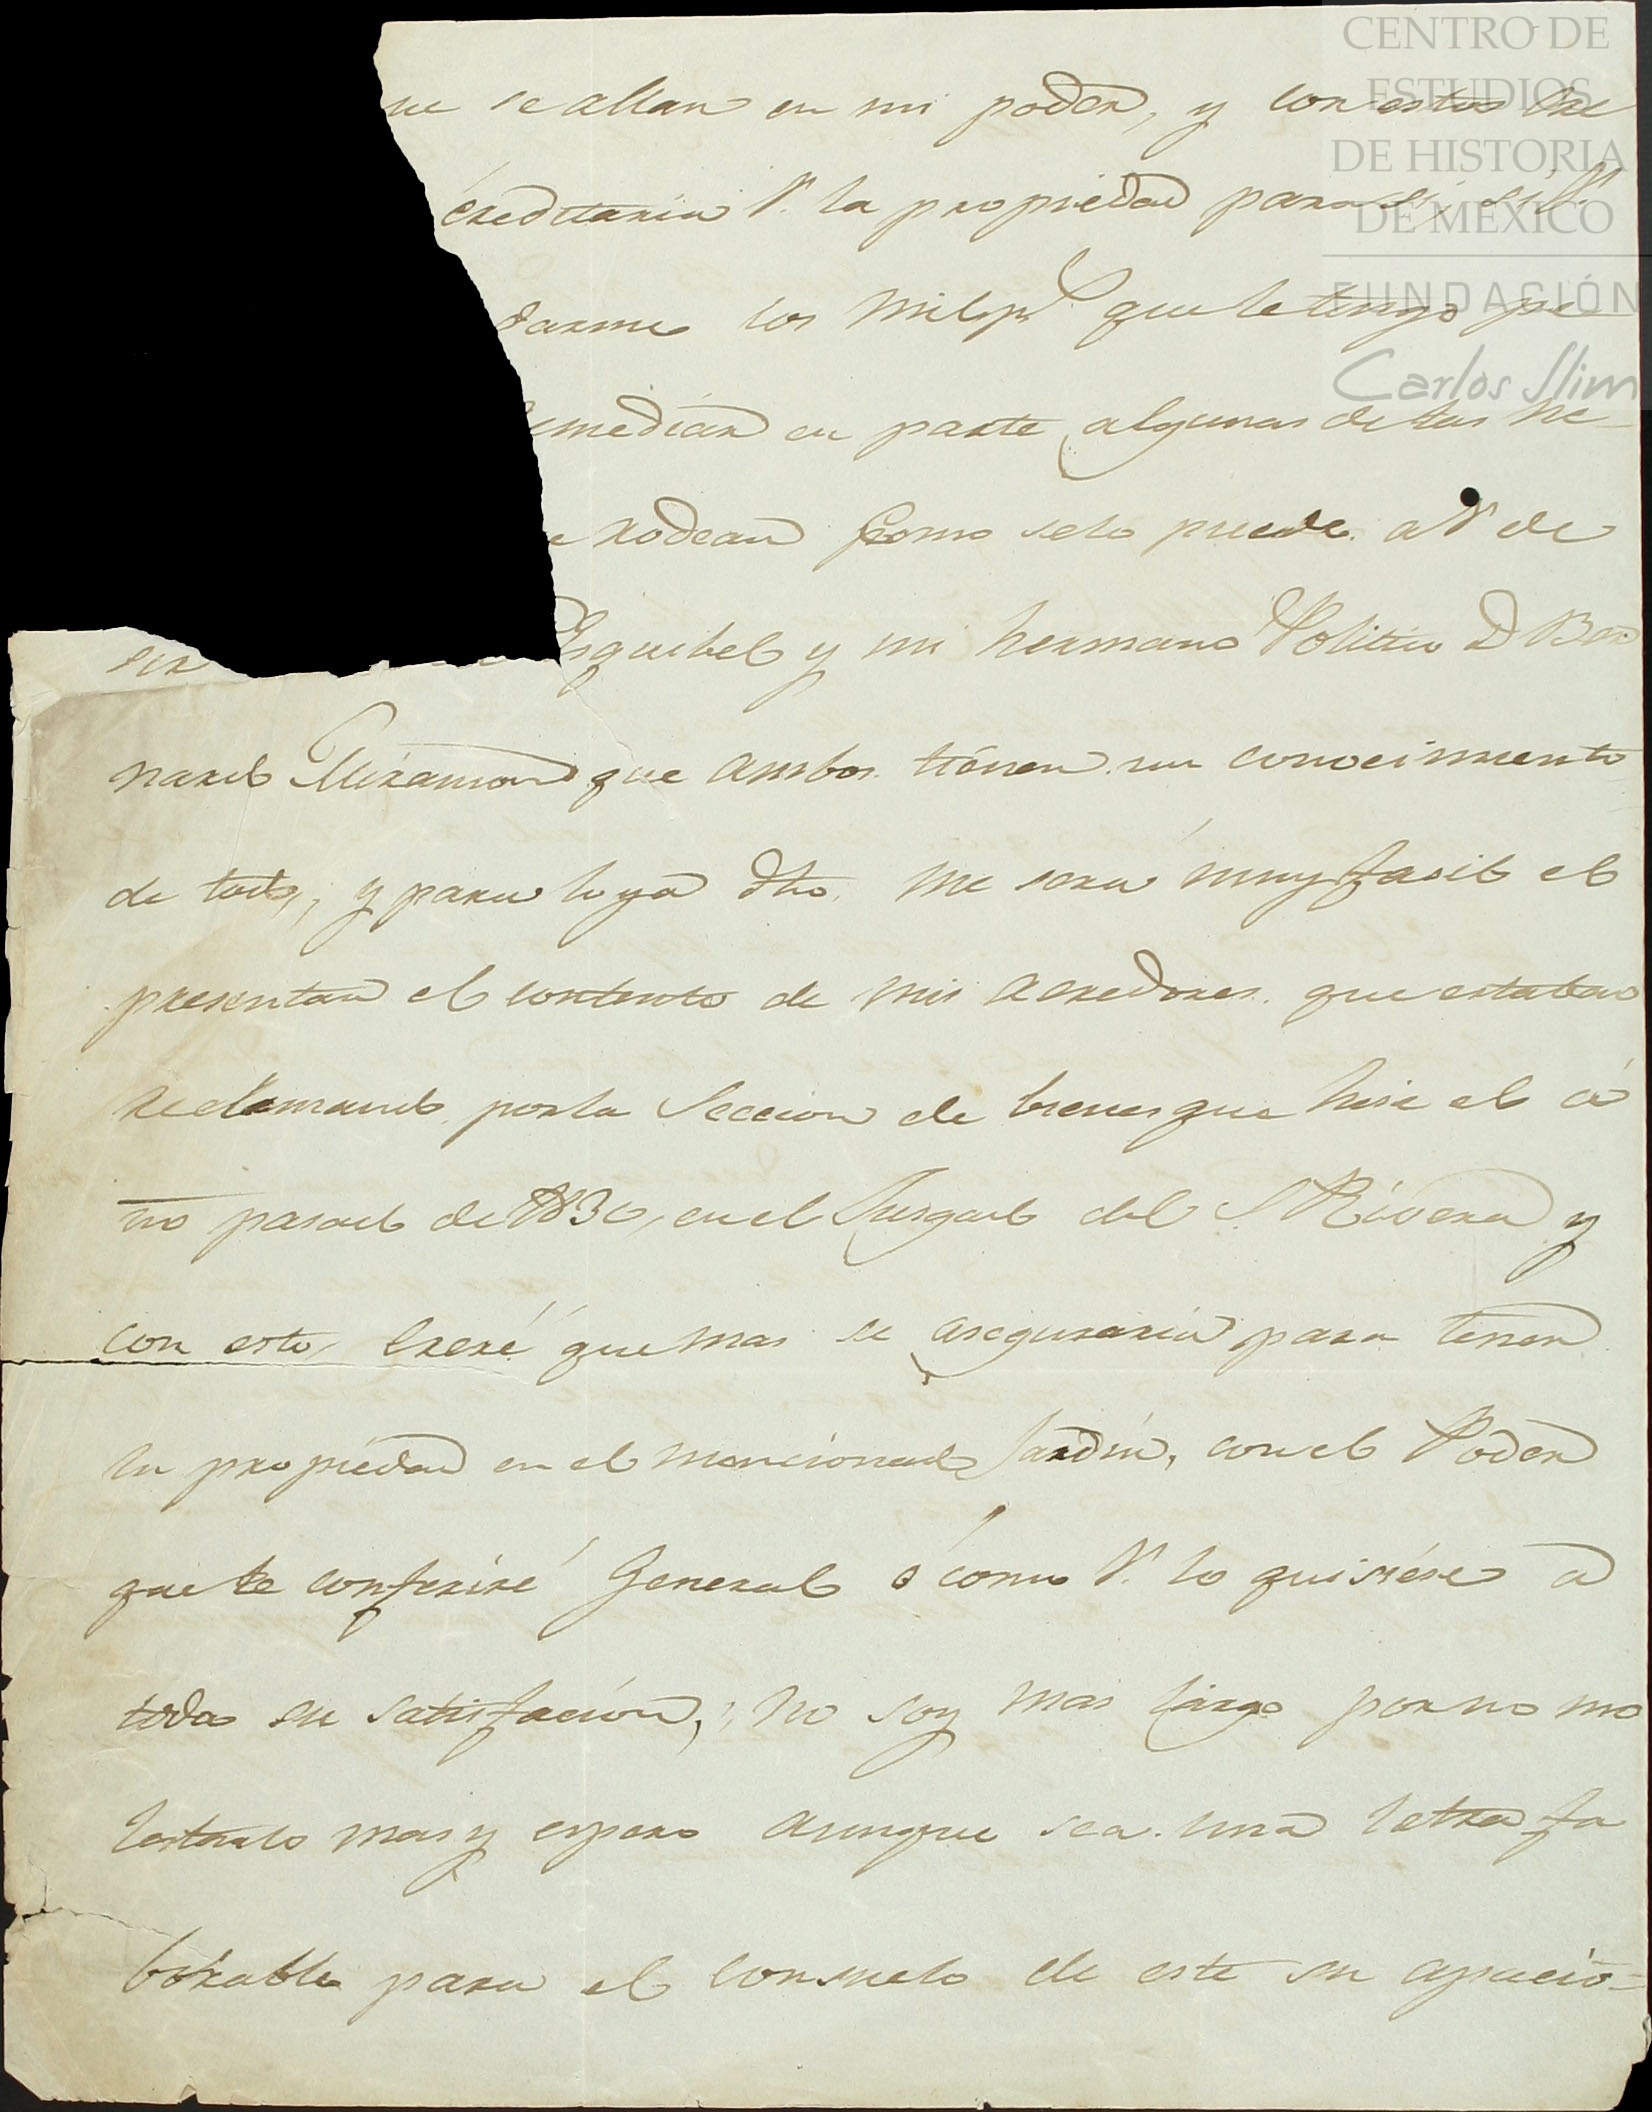 CENTRO DE
ESTUDIOS
DE HISTORIA
DE MEXICO
FUNDACIÓN
Carlos Slim
ue se allan en mi poder, y con estos se
creditaria V. la propiedad para si, si V.
darme los mil ps que le tengo pe
emediar en parte algunas de las ne_
e rodean como selo puede a V de
sir Esquibel y mi hermano Politico D Ber
nardo Miramon que ambos tiénen un conocimiento
de todo, y para lo ya dho. me sera muy facil el
presentar el contento de mis acredores que estaban
reclamando por la Seccion de bienes que hise el a
ño pasado de 1830, en el Jusgado del S. Rivera y
con esto, creré que mas se aseguraria para tener
la propiedad en el mencionado Jardin, con el Poder
que le conferiré General ó como V. lo quisiése a
toda su satisfacion, no soy mas largo por no mo
lestarlo mas y espero aunque sea una letra fa
borable para el consuelo de este su apacio=